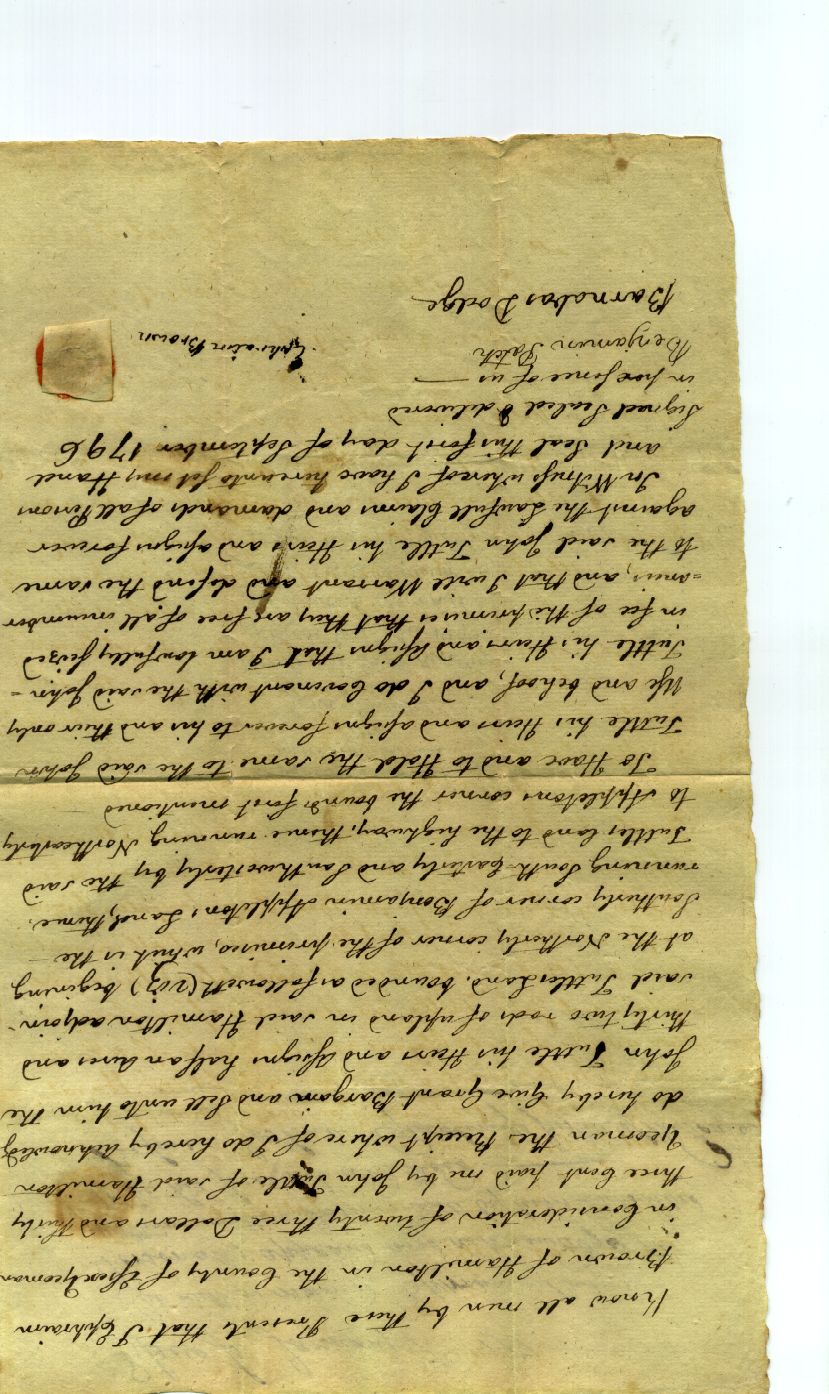 Know all men by these Presents that I Ephraim
Brown of Hamilton in the County of Essex Yeoman
in Consideration of twenty three Dollars and thirty
three Cent paid me by John Tuttle of said Hamilton
Yeoman the Receipt where of I do hereby acknowledg
do hereby Give Grant Bargain and Sell unto him the
John Tuttle his Heirs and Assigns half an Acres and
thirty two rods of upland in said Hamilton adjoin
said Tuttles Land. bounded as followeth (viz) begining
at the Northerly corner of the premises, which is the
Southerly corner of Benjamin Appletons Land, thence
running South Easterly and Southwesterly by the said
Tuttles land to the highway; thence running Northeasterly
to Appletons corner the bound first mentioned
To Have and to Hold the same to the said John
Tuttle his Heirs and assigns forever to his and their only
Use and behoof, and I do Covenant with the said John =
Tuttle his Heirs and Assigns that I am lawfully seized
in fee of the premises that they are free of all incumber
=ances, and that I will Warrant and defend the same
to the said John Tuttle his Heirs and assigns forever
against the Lawfull Claims and damands of all Persons
In Witness whereof I have hereunto set my Hand
and Seal this first day of September 1796
Signed Sealed & delivered
in presence of us
Benjamin Patch
Ephraim Brown
Barnabas Dodge